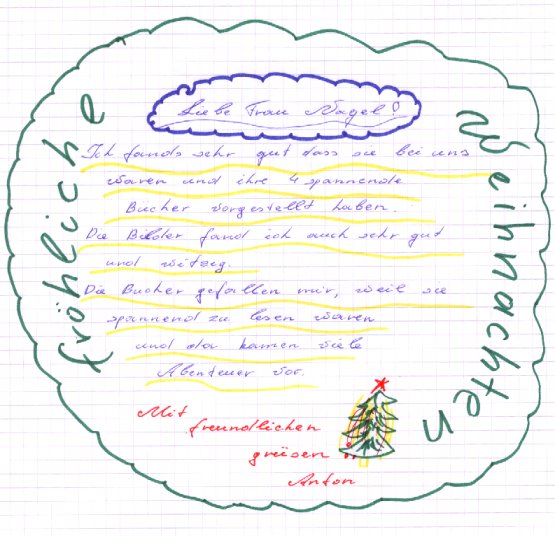 fröhliche
Weihnachten
Liebe Frau Nagel!
Ich fands sehr gut dass sie bei uns
waren und ihre 4 spannende
Bucher vorgestellt haben.
Die Bilder fand ich auch sehr gut
und witzig.
Die Bucher gefallen mir, weil sie
spannend zu lesen waren
und da kamen viele
Abenteuer vor.
Mit
freundlichen
grüsen
Anton